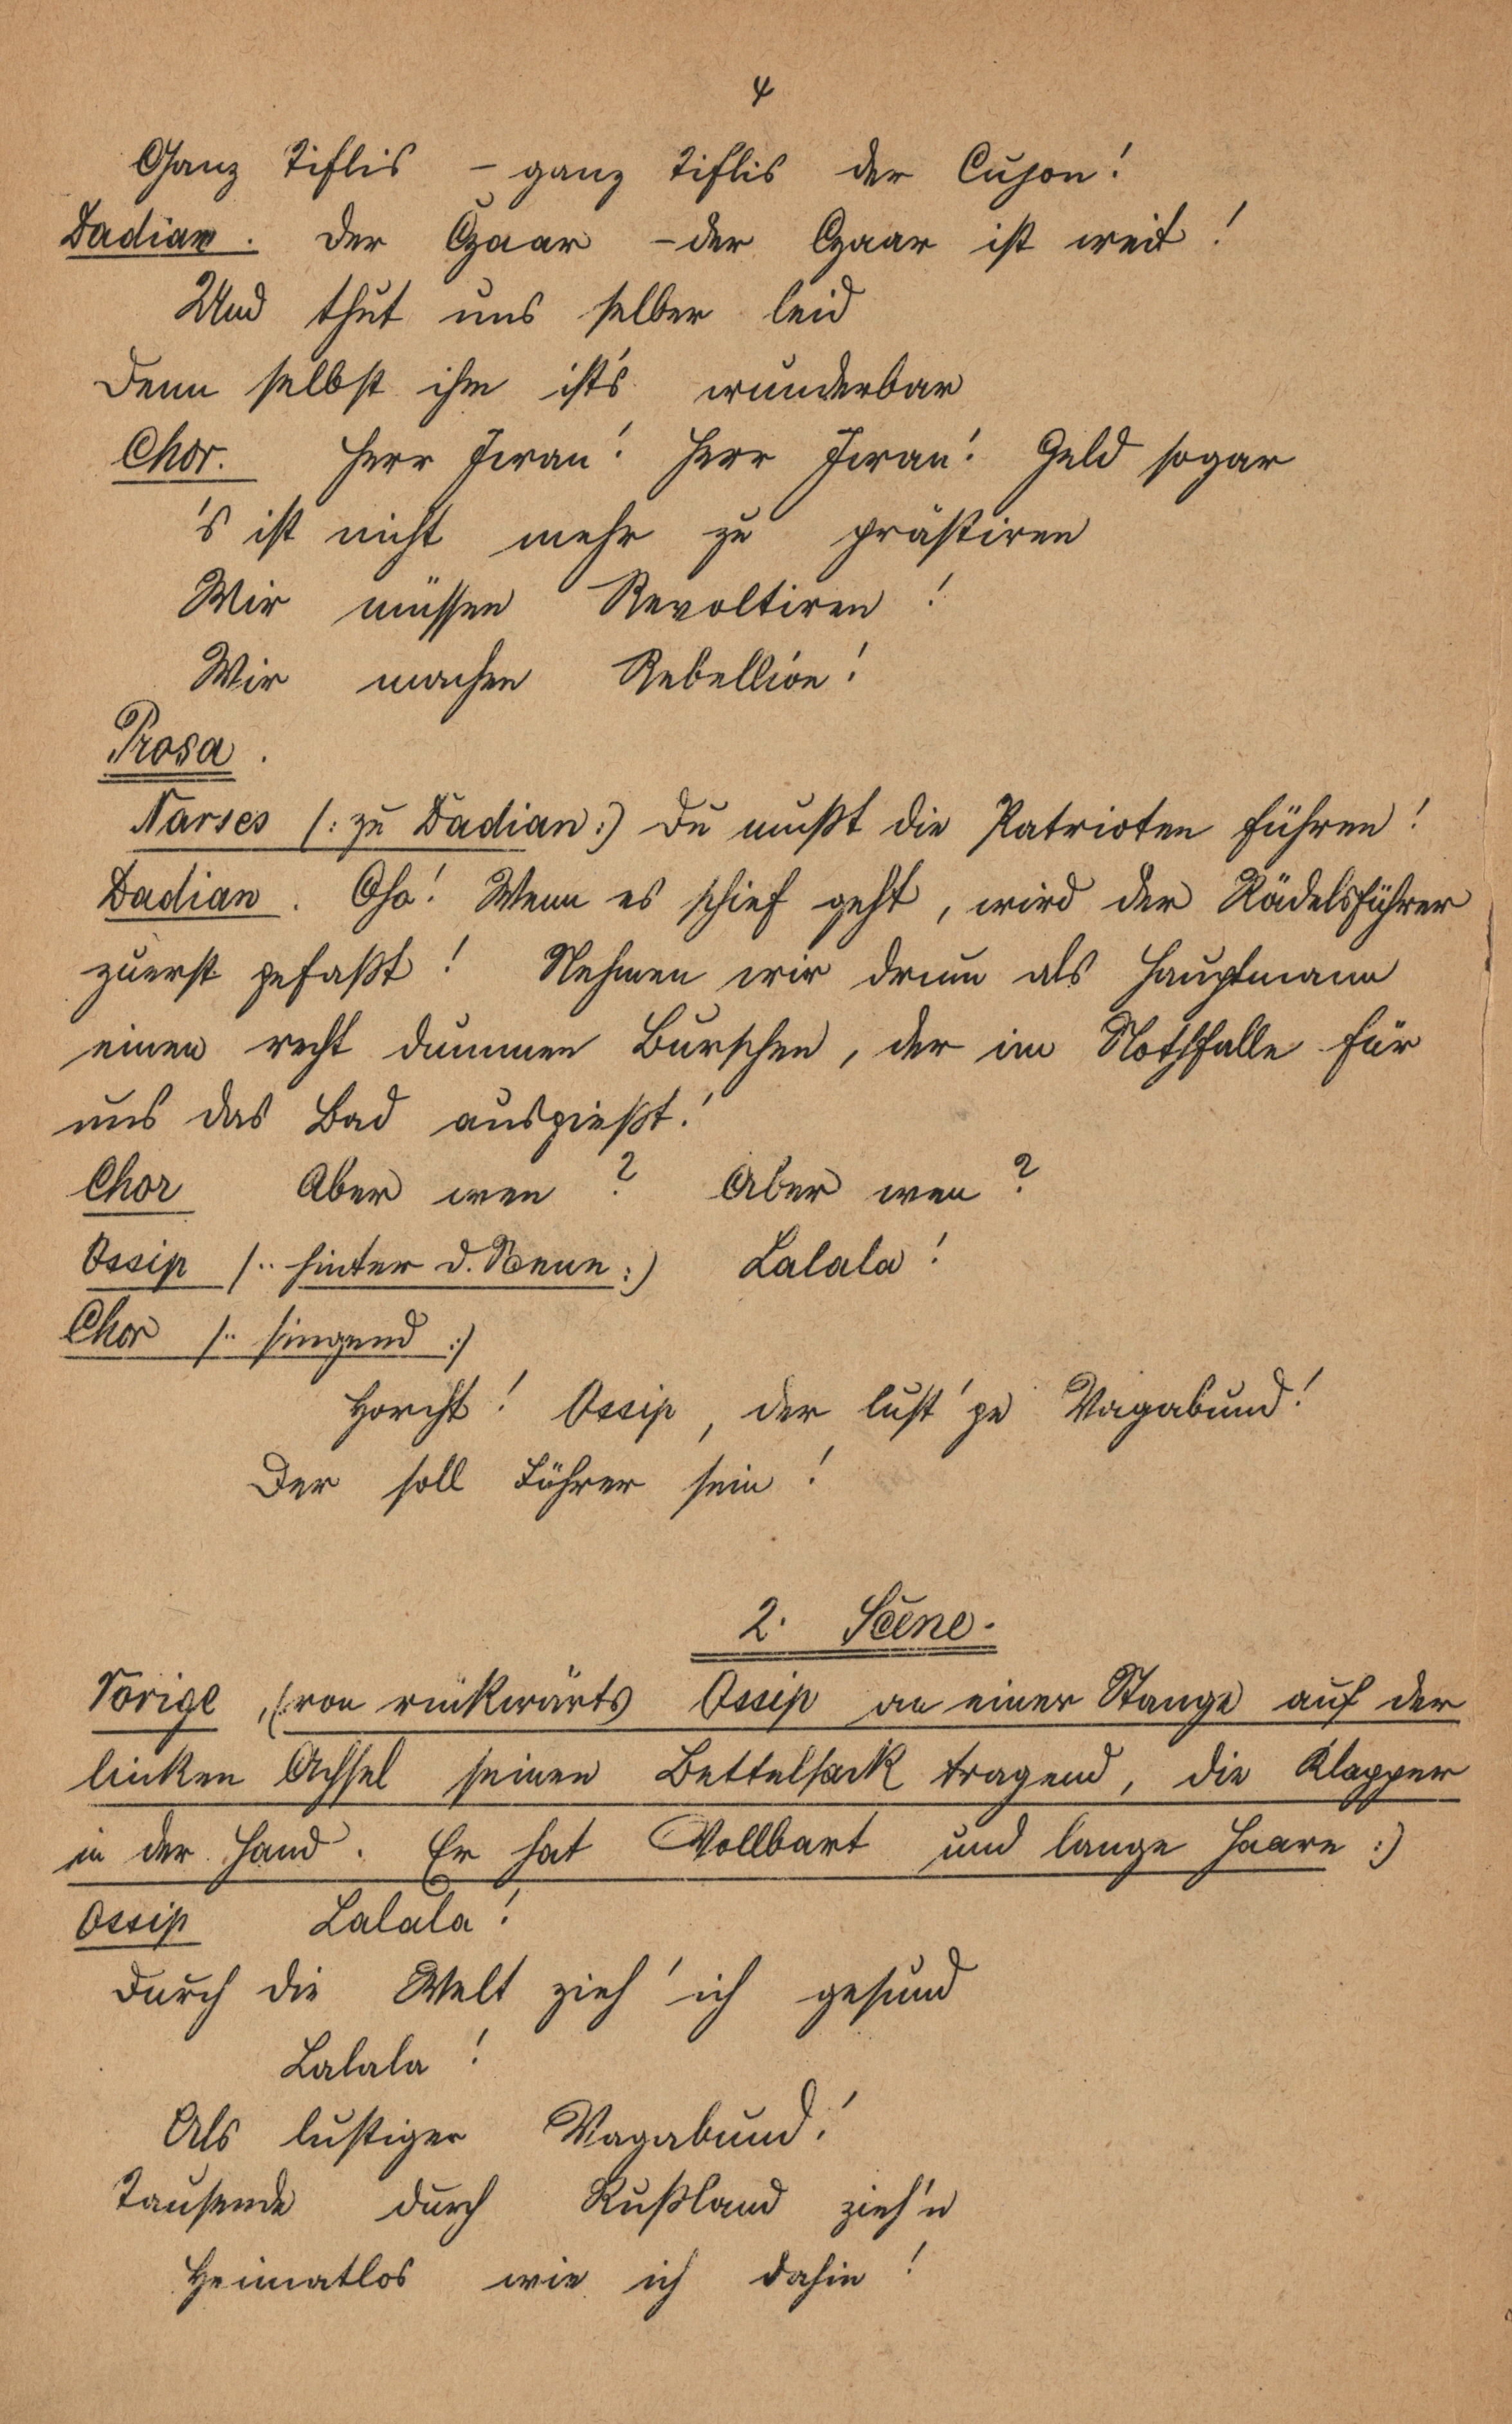 4
Ganz Tiflis – ganz Tiflis der Cujon!
Dadian. Der Czaar – der Czaar ist weit!
Und thut uns selber leid
Denn selbst ihm ist's wunderbar
Chor. Herr Iwan! Herr Iwan! Geld sogar
's ist nicht mehr zu prästiren
Wir müssen Revoltiren!
Wir machen Rebellion!
Prosa.
Narses (: zu Dadian :) Du mußt die Patrioten führen!
Dadian. Oho! Wenn es schief geht, wird der Rädelsführer
zuerst gefaßt! Nehmen wir drum als Hauptmann
einen recht dummen Burschen, der im Nothfalle für
uns das Bad ausgießt!
Chor Aber wen? Aber wen?
Ossip (: hinter d. :) Lalala!
Chor (: singend :)
Horcht! Ossip, der lust'ge Vagabund!
Der soll Führer sein!
2. Scene.
Vorige, (: von rückwärts Ossip an einer Stange auf der
linken Achsel seinen Bettelsack tragend, die Klapper
in der Hand. Er hat Vollbart und lange Haare :)
Ossip Lalala!
Durch die Welt zieh' ich gesund
Lalala!
Als lustiger Vagabund!
Tausende durch Rußland zieh'n
Heimatlos wie ich dahin!